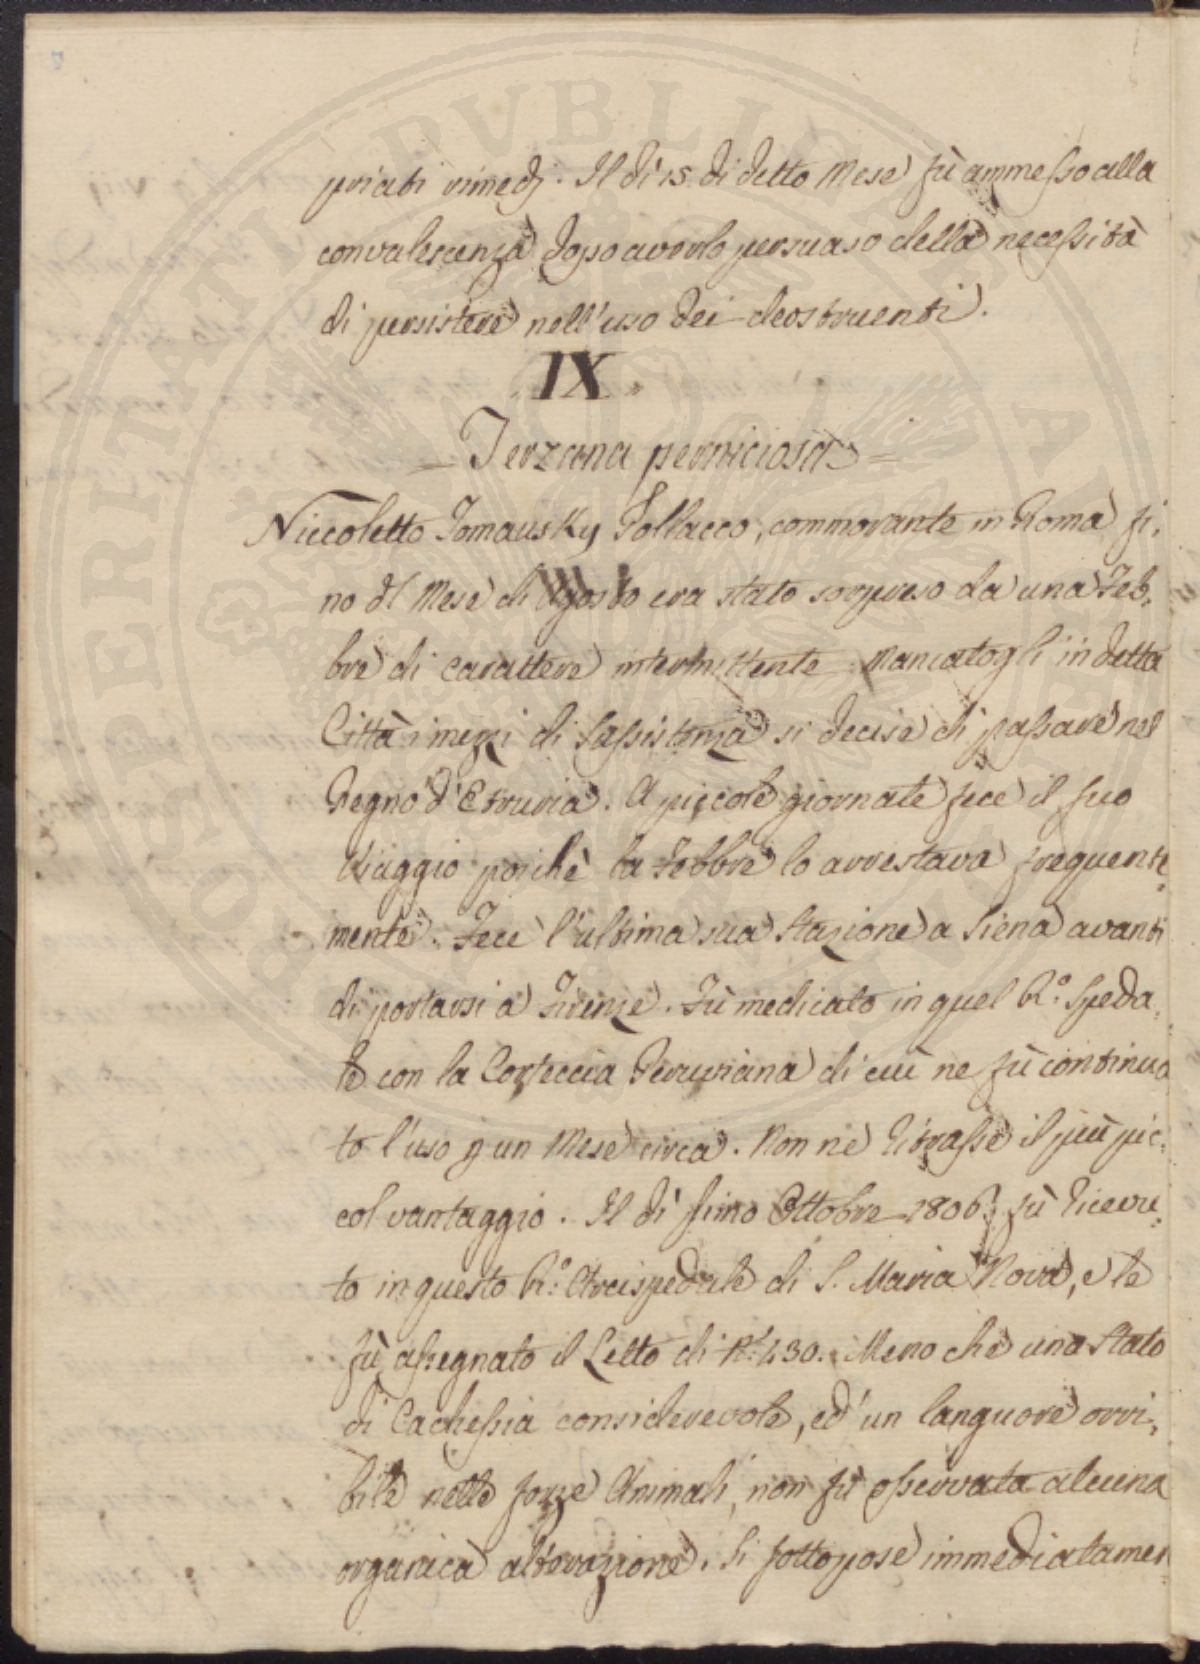 priati rimedj. Il dì 15 di detto Mese fù ammesso alla
convalescenza dopo averlo persuaso della necessità
di persistere nell'uso dei deostruenti.
IX
= Terzana perniciosa =
Niccoletto Tomausky Pollacco, commorante in Roma fi,
no dal Mese di Agosto era stato sorpreso da una Feb,
bre di carattere intermittente. Mancatogli in detta
Città i mezzi di sussistenza si decise di passare nel
Regno d'Etruria. A piccole giornate fece il suo
Viaggio poichè la Febbre lo arrestava frequente
mente. Fece l'ultima sua Stazione a Siena avanti
di portarsi a Firenze. Fù medicato in quel R.º Speda,
le con la Corteccia Peruviana di cui ne fù continua
to l'uso p un Mese circa. Non ne ritrasse il più pic,
col vantaggio. Il dì primo Ottobre 1806. fù ricevu,
to in questo R.º Arcispedale di S. Maria Nova, e le
fù assegnato il Letto di N.º 430. Meno che uno Stato
di Cachessia considerevole, ed' un languore orri,
bile nelle forze Animali, non fù osservata alcuna
organica alterazione. Si sottopose immediatamen
PROSPERITATI PVBLICAE AVGENDAE